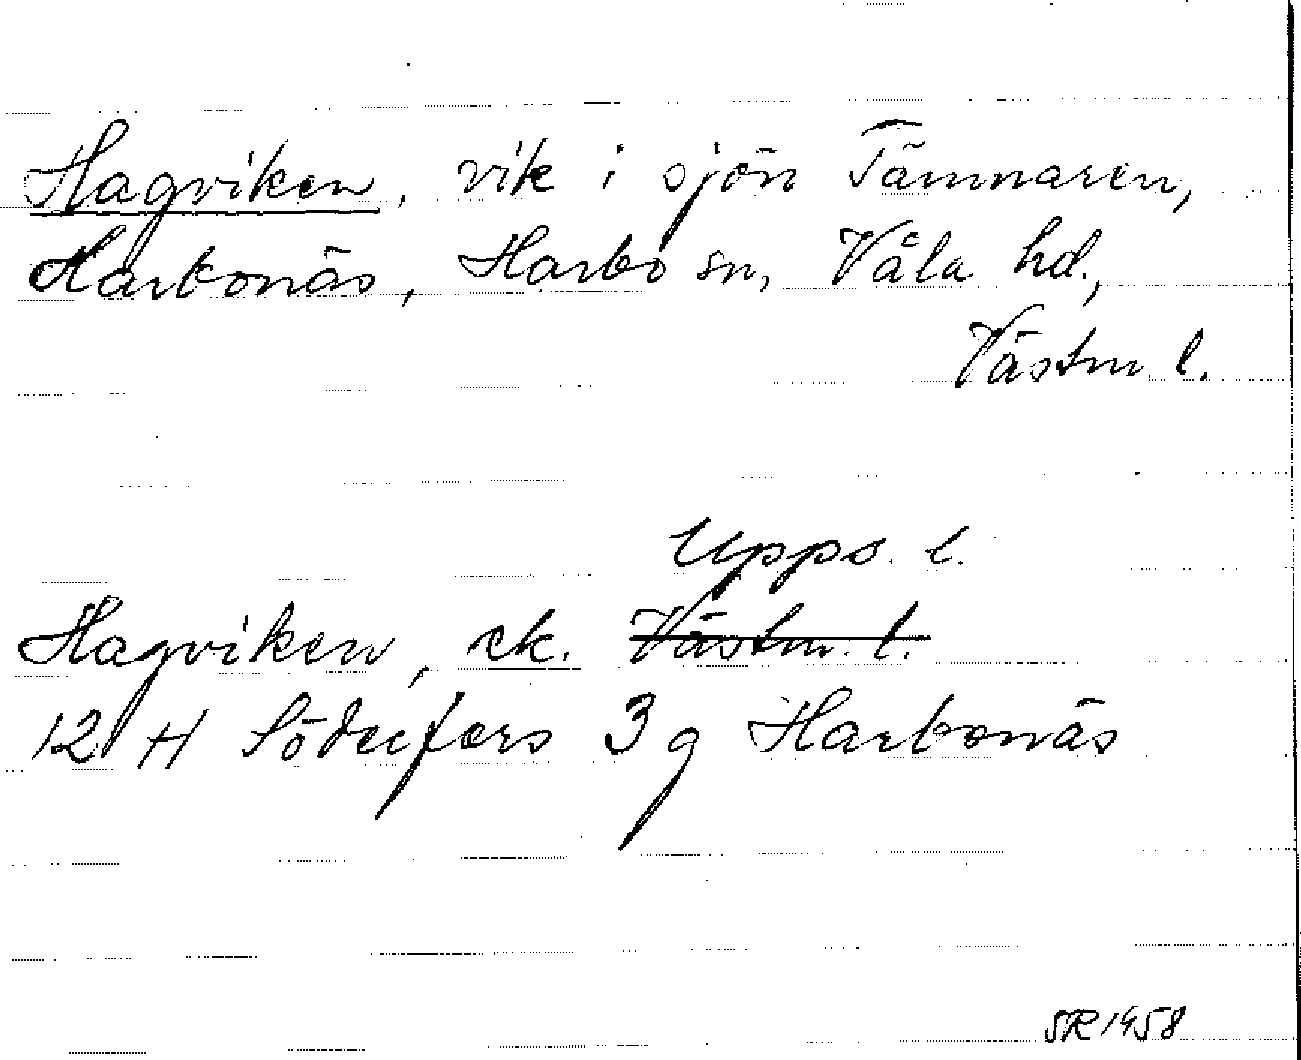 Hagviken, vik i sjön Tämnaren,
Harbonäs, Harbo sn, Våla hd.,
Västm l.
Upps. l.
Hagviken, ek. Västm. l.
12 H Söderfors 3 g Harbonäs
SR 1958